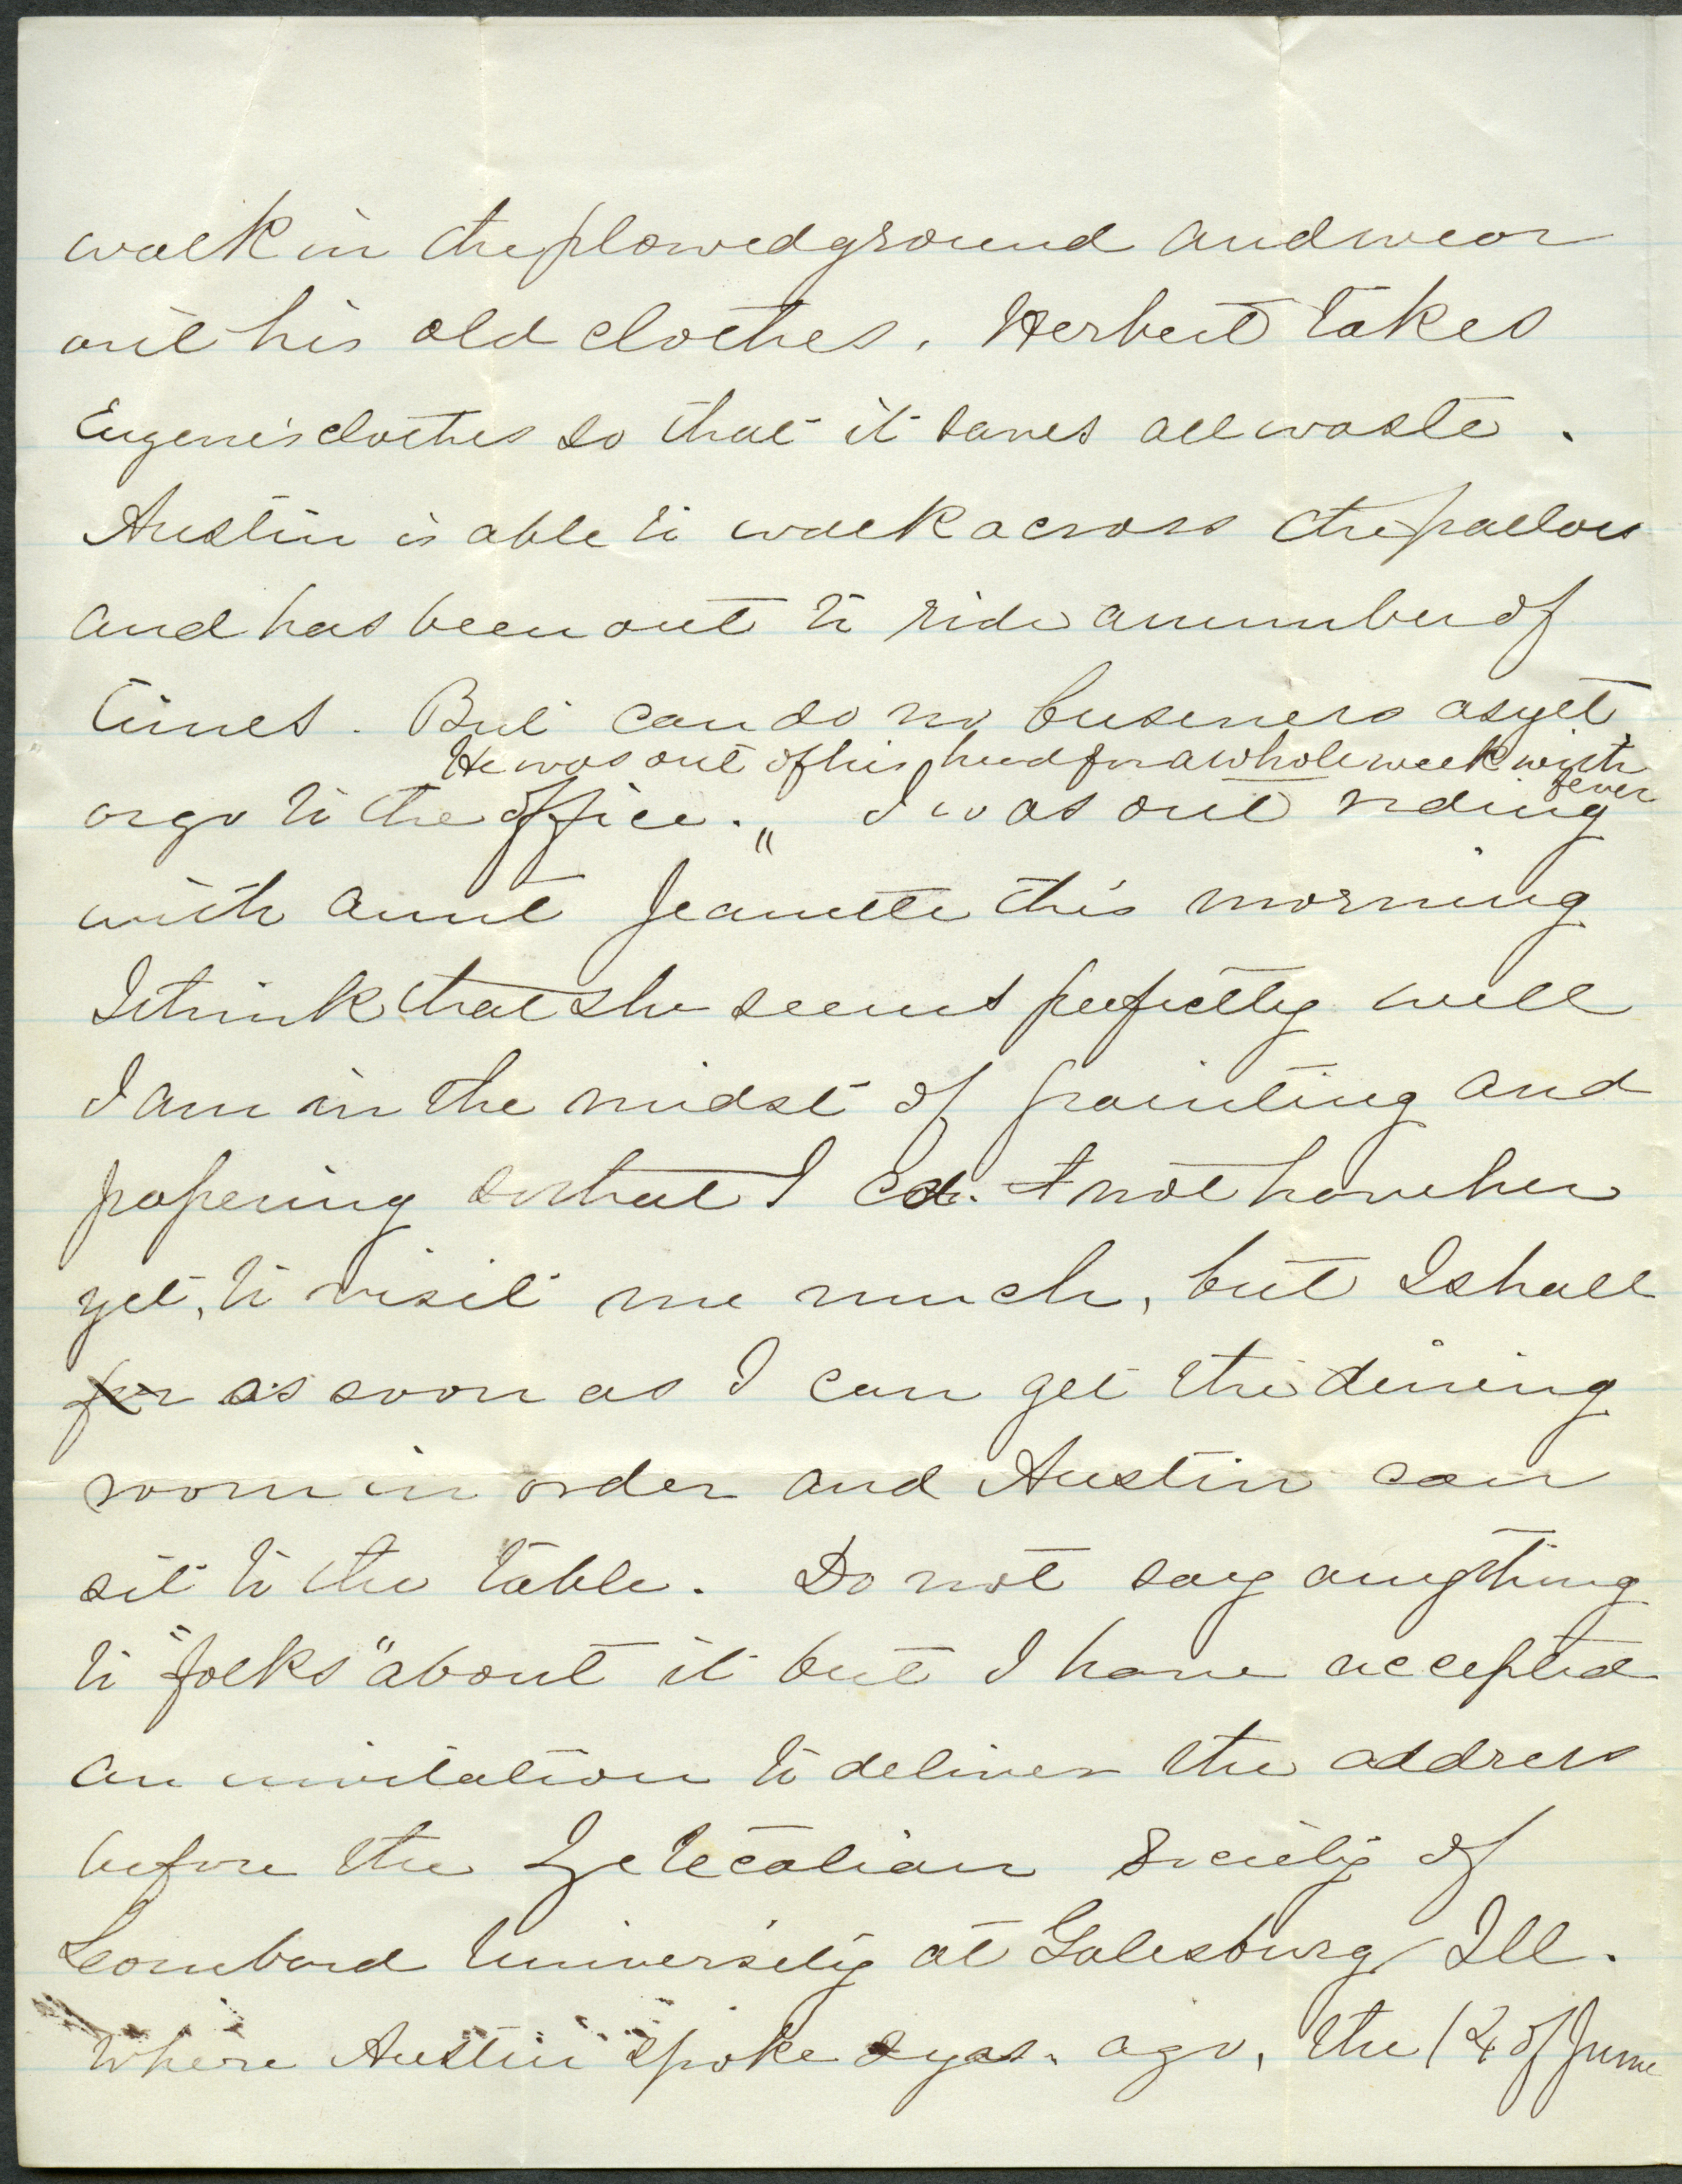 walk in the plowed ground and wear
out his old clothes. Herbert takes
Eugene's clothes so that it saves all waste.
Austin is able to walk across the parlors
and has been out to ride a number of
times. But can do no business as yet
He was out of his head for a whole week with
fever
or go to the office. " I was out riding
with aunt Jeanette this morning
I think that she seems perfectly well
I am in the midst of painting and
papering so that I not have her
yet, to visit me much, but I shall
for as soon as I can get the dining
room in order and Austin can
sit to the table. Do not say anything
to "folks" about it but I have accepted
an invitation to deliver the address
before the Zetecalian Society of
Lombard University at Galesburg Ill.
Where Austin spoke yrs. ago, the of June